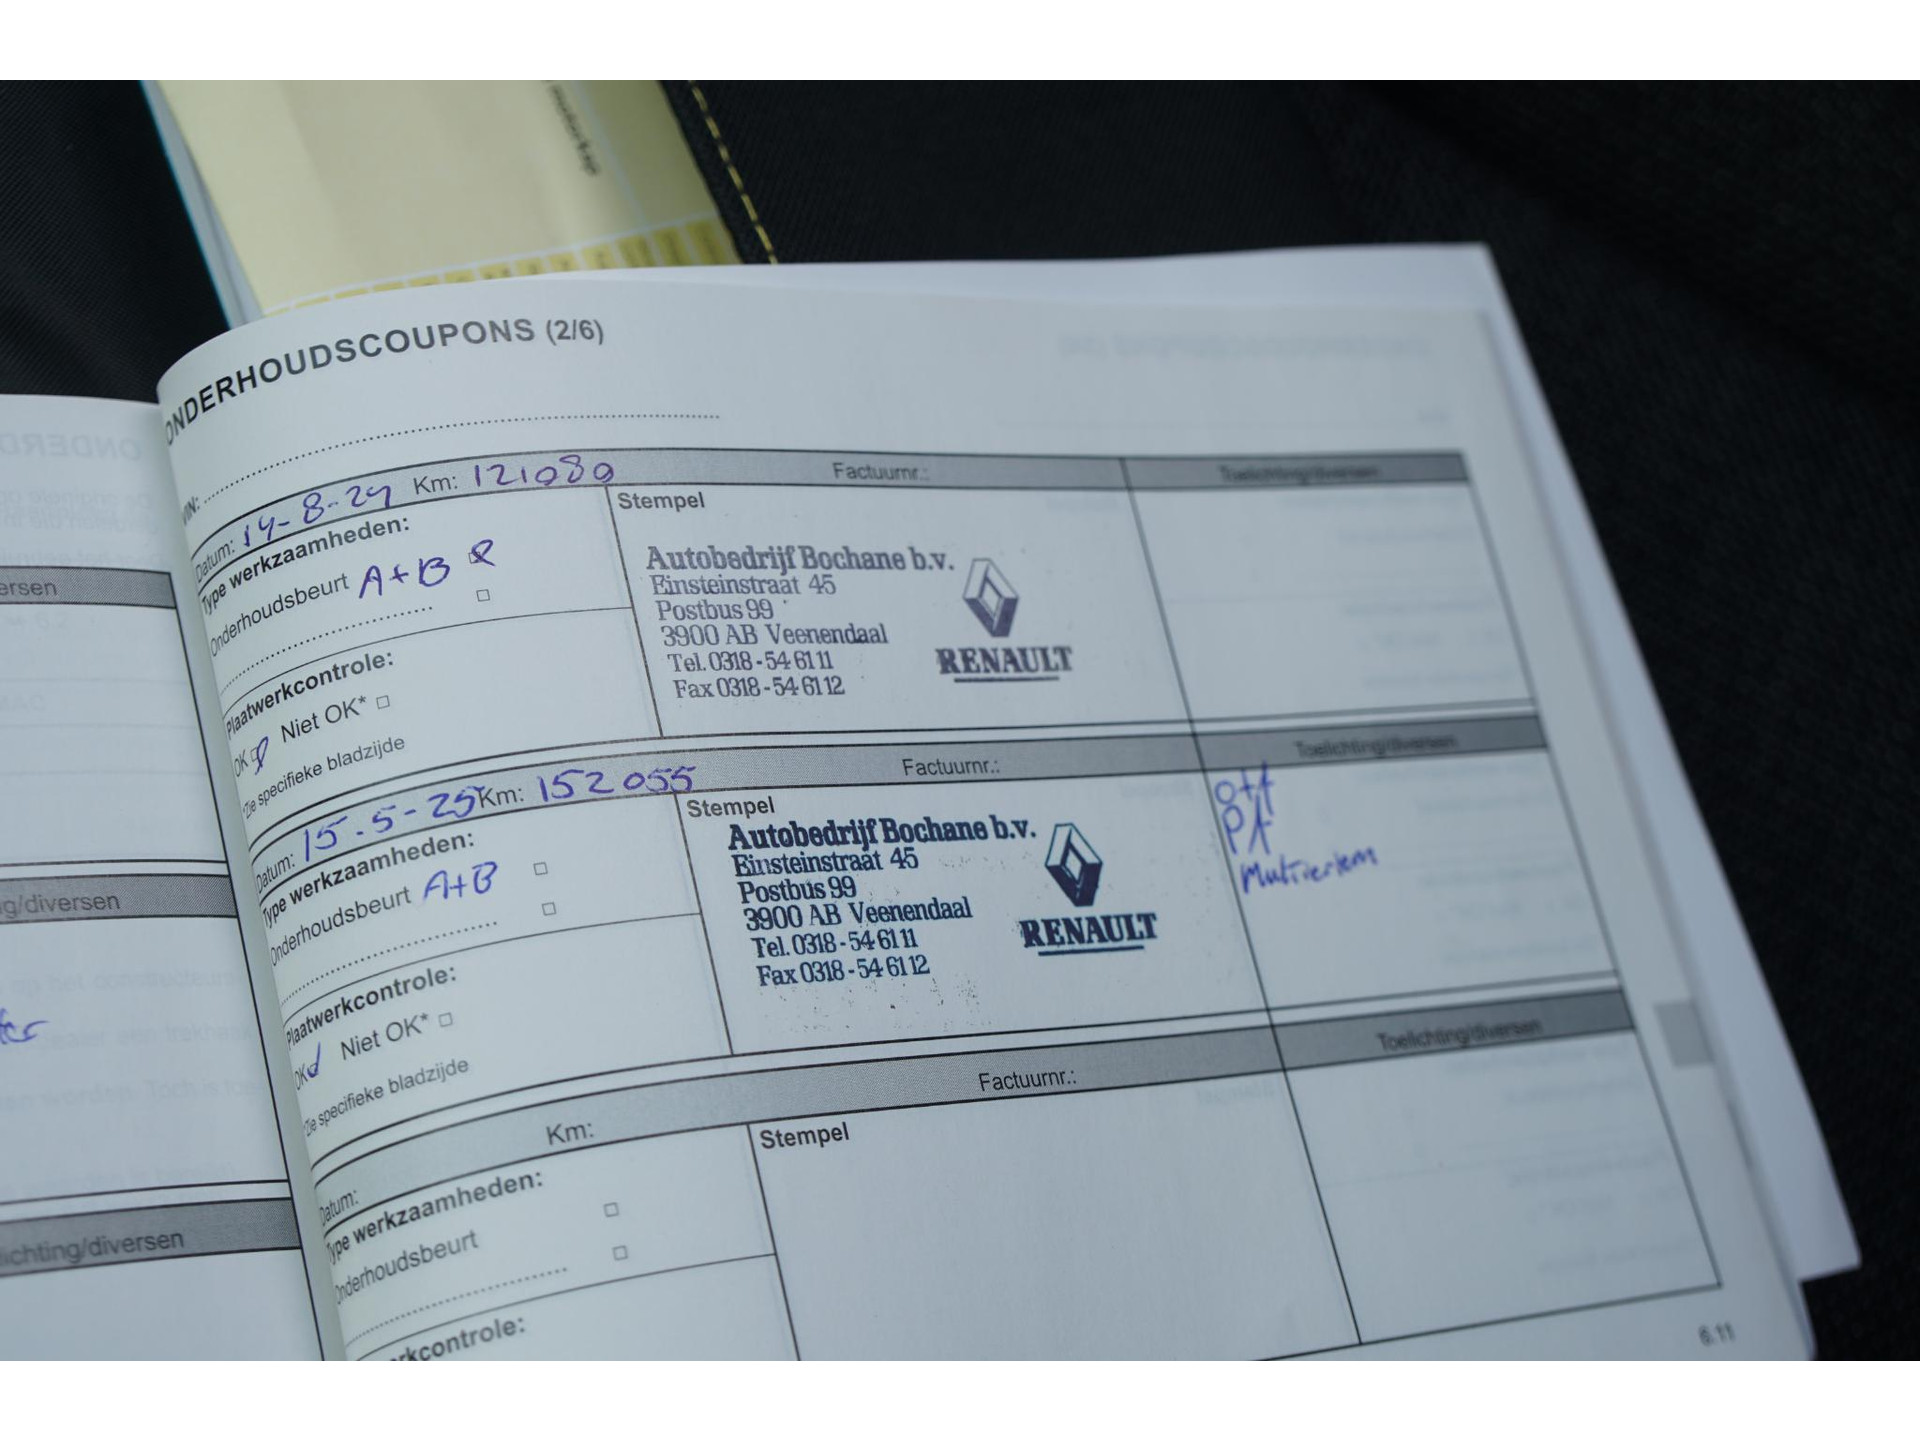 motorkap
ONDERHOUDSCOUPONS (2/6)
VIN:
Datum: 14-8-24 Km: 121080 Factuurnr.: Toelichting/diversen
Type werkzaamheden:
Onderhoudsbeurt A+B
Stempel
Autobedrijf Bochane b.v.
Einsteinstraat 45
Postbus 99
3900 AB Veenendaal
Tel. 0318-54 61 11
Fax 0318-54 61 12
RENAULT
Plaatwerkcontrole:
OK Niet OK*
*Zie specifieke bladzijde
Datum: 15-5-25 Km: 152055 Factuurnr.: Toelichting/diversen
Type werkzaamheden:
Onderhoudsbeurt A+B
Stempel
Autobedrijf Bochane b.v.
Einsteinstraat 45
Postbus 99
3900 AB Veenendaal
Tel. 0318-54 61 11
Fax 0318-54 61 12
RENAULT
Plaatwerkcontrole:
OK Niet OK*
*Zie specifieke bladzijde
Datum: Km: Factuurnr.: Toelichting/diversen
Type werkzaamheden:
Onderhoudsbeurt
Stempel
rkcontrole:
6.11
ersen
ng/diversen
lichting/diversen